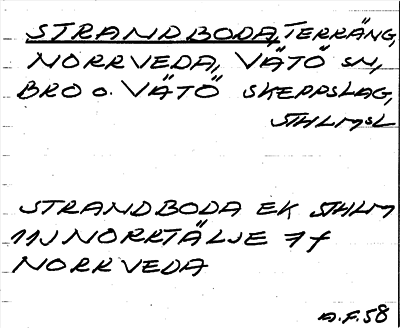 STRANDBODA, TERRÄNG,
NORRVEDA, VÄTÖ SN,
BRO O. VÄTÖ SKEPPSLAG,
STHLMSL
STRANDBODA EK STHLM
11J NORRTÄLJE 7f
NORRVEDA
A.F.58